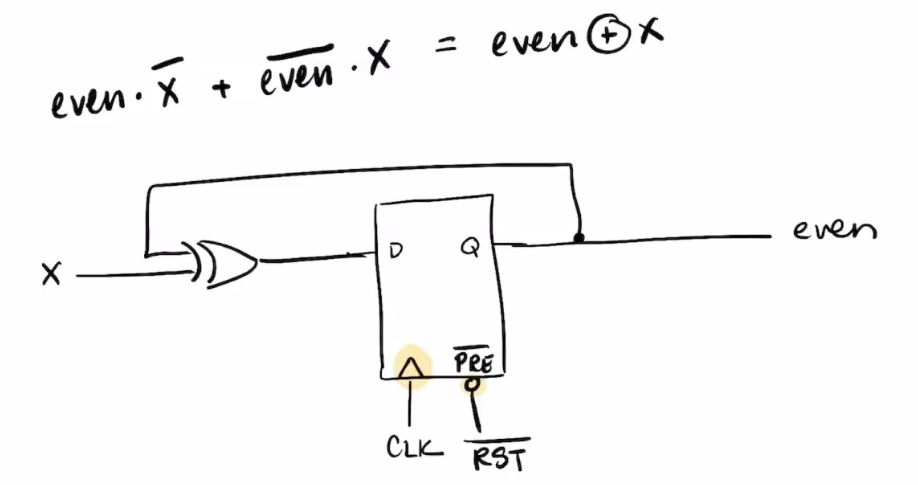 even · x̅ + e̅v̅e̅n̅ · x = even ⊕ x
even
D Q
X
P̅R̅E̅
CLK R̅S̅T̅